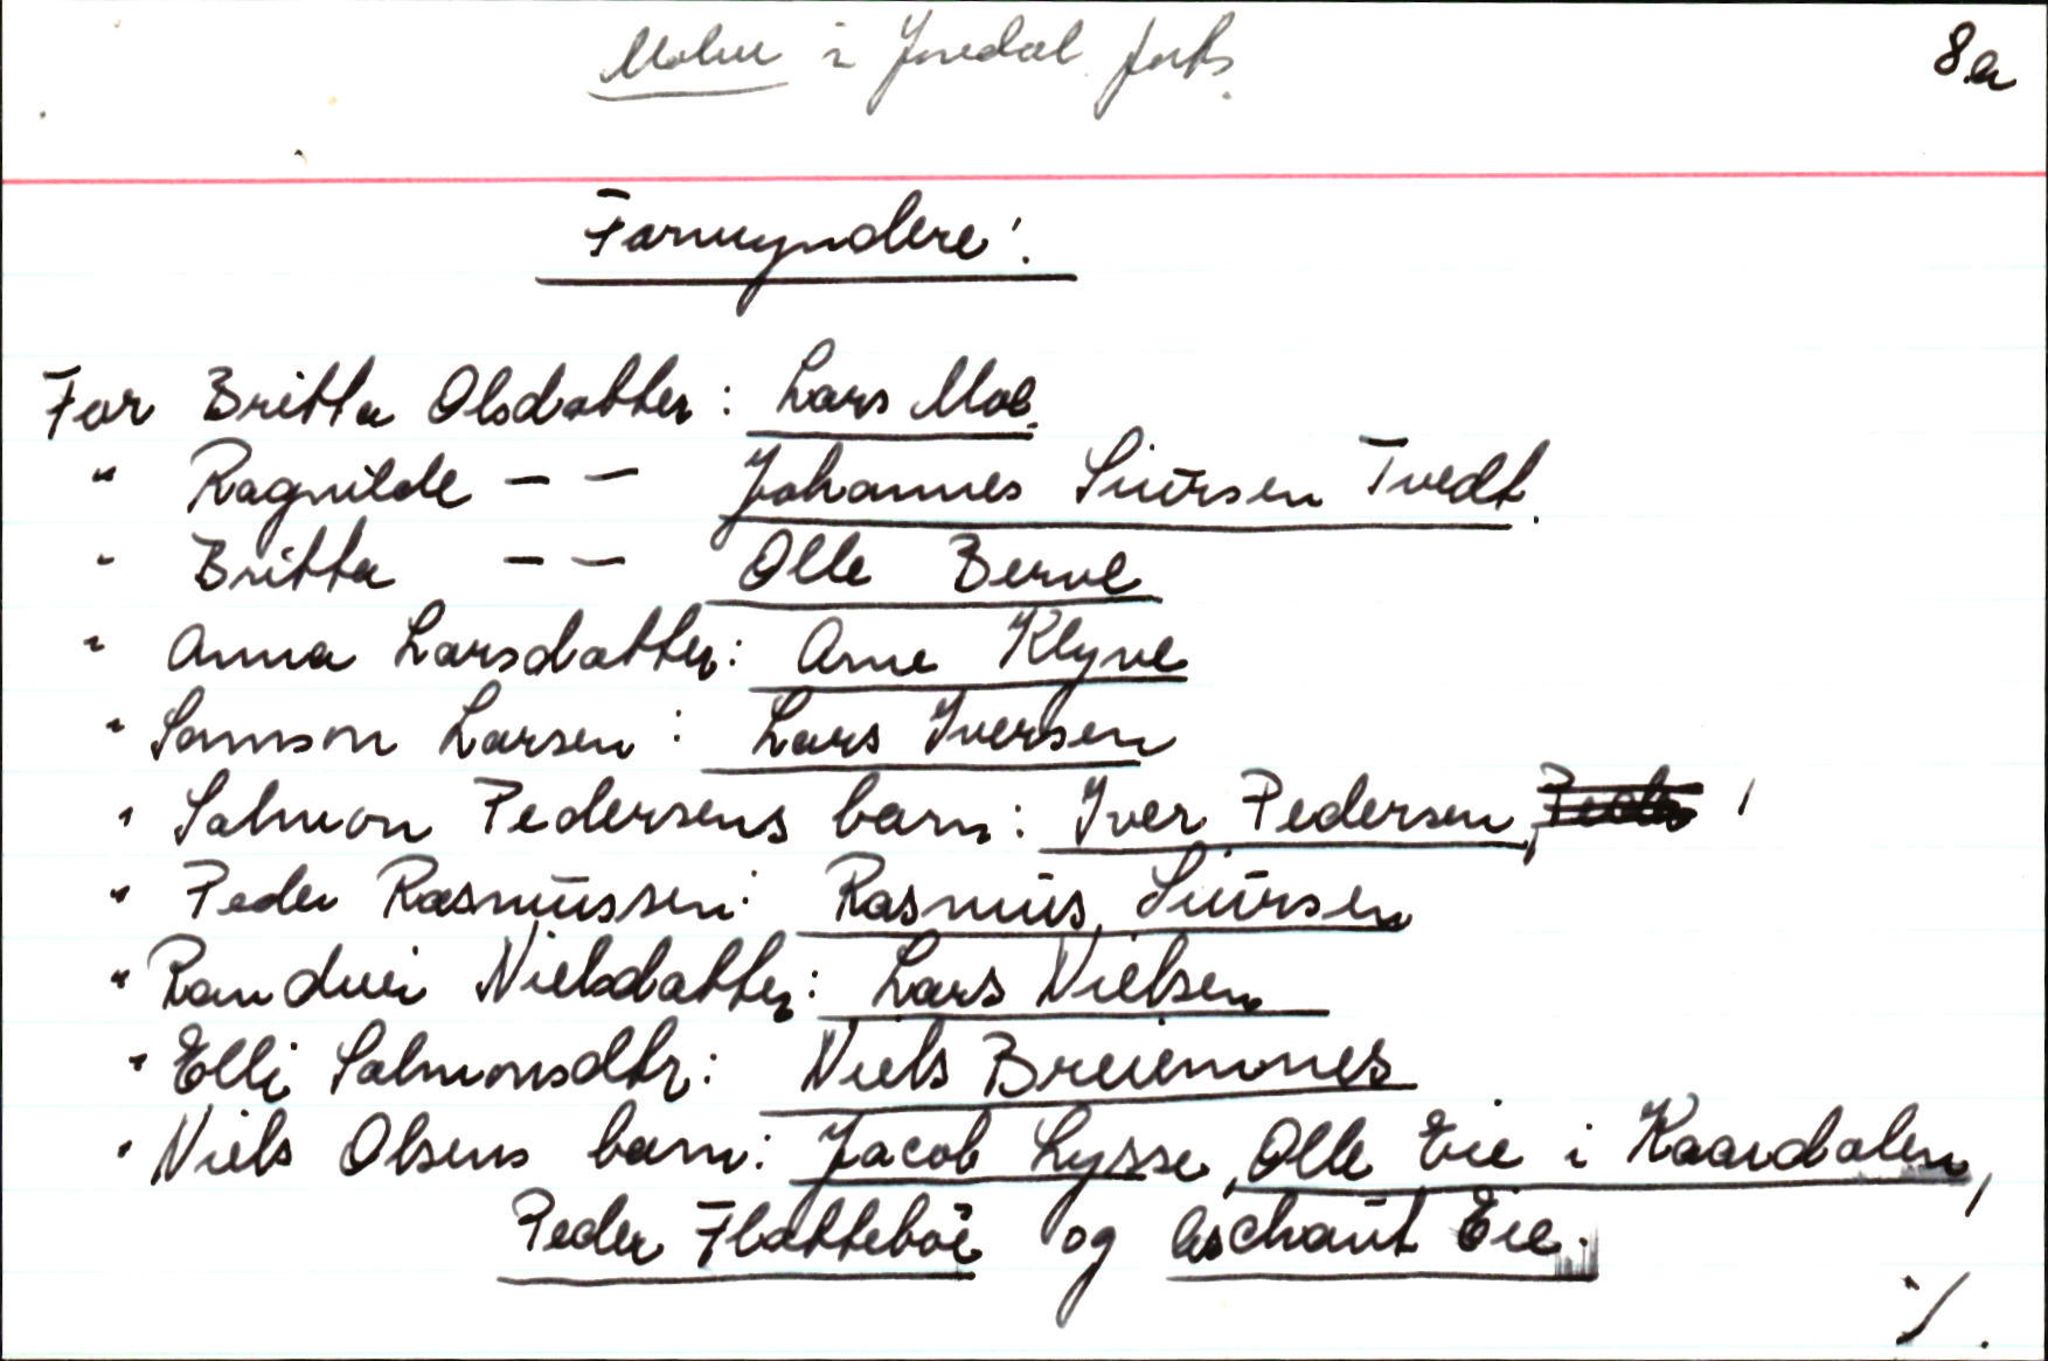 Molne i Jondal forts.
8a
Formyndere:
For Britta Olsdatter: Lars Moe.
" Ragnilde – – Johannes Siursen Tvedt.
" Britta – – Olle Berve
" Anna Larsdatter: Arne Klyve
" Samson Larsen: Lars Iversen
" Salmon Pedersens barn: Iver Pedersen,
" Peder Rasmussen: Rasmus Siursen
" Randvei Nielsdatter: Lars Nielsen
" Elli Salmonsdtr: Niels Breiemones
" Niels Olsens barn: Jacob Lysse, Olle Eie i Kaardalen,
Peder Flatteböe og Aschaut Eie.
./.